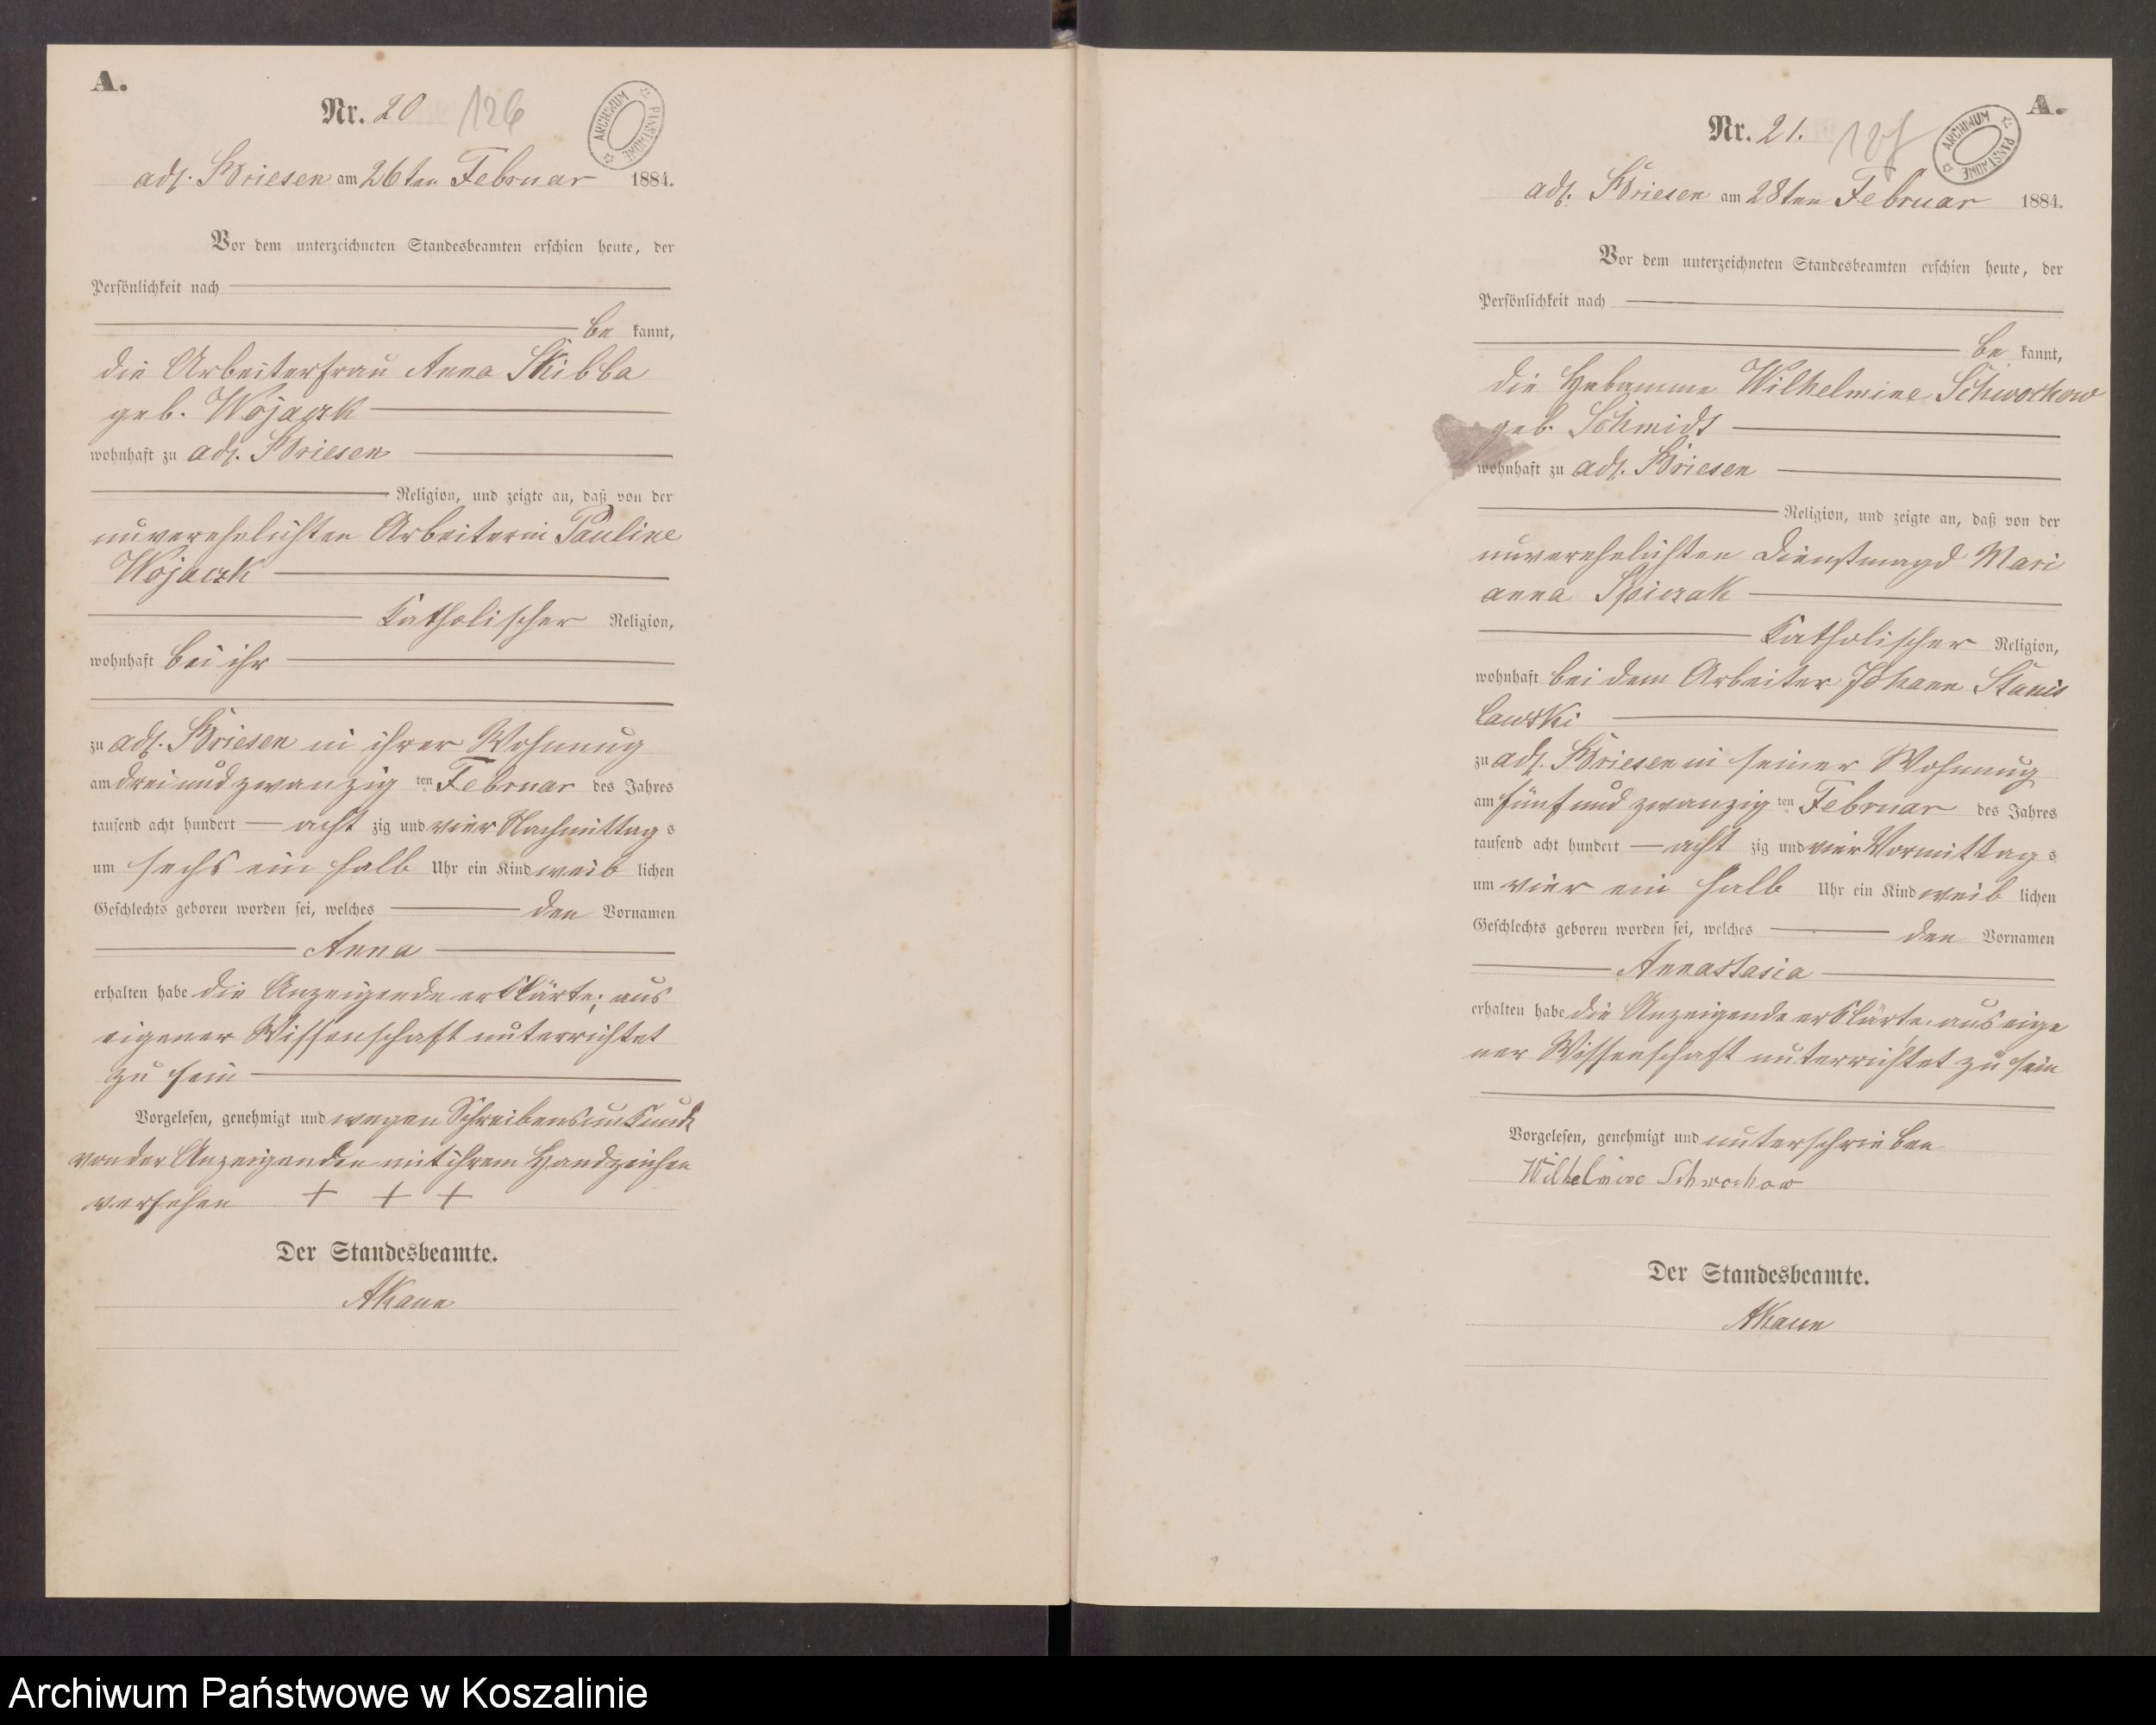 A.
Nr. 20
126
ARCHIWUM PAŃSTWOWE
adl. Briesen am 26ten Februar 1884.
Vor dem unterzeichneten Standesbeamten erschien heute, der
Persönlichkeit nach
be kannt,
die Arbeiterfrau Anna Skibba
geb. Wojaczk
wohnhaft zu adl. Briesen
Religion, und zeigte an, daß von der
unverehelichten Arbeiterin Pauline
Wojaczk
Katholischer Religion,
wohnhaft bei ihr
zu adl. Briesen in ihrer Wohnung
am dreiundzwanzig ten Februar des Jahres
tausend acht hundert acht zig und vier Nachmittag s
um sechs ein halb Uhr ein Kind weib lichen
Geschlechts geboren worden sei, welches den Vornamen
Anna
erhalten habe die Anzeigende erklärte; aus
eigener Wissenschaft unterrichtet
zu sein
Vorgelesen, genehmigt und wegen Schreibensunkunde
von der Anzeigenden mit ihrem Handzeichen
versehen + + +
Der Standesbeamte.
AKaun
A.
Nr. 21.
ARCHIWUM PAŃSTWOWE
adl. Briesen am 28ten Februar 1884.
Vor dem unterzeichneten Standesbeamten erschien heute, der
Persönlichkeit nach
be kannt,
die Hebamme Wilhelmine Schwochow
geb. Schmidt
wohnhaft zu adl. Briesen
Religion, und zeigte an, daß von der
unverehelichten Dienstmagd Mari
anna Spiczak
Katholischer Religion,
wohnhaft bei dem Arbeiter Johann Stanis
lawski
zu adl. Briesen in seiner Wohnung
am fünfundzwanzig ten Februar des Jahres
tausend acht hundert acht zig und vier Vormittag s
um vier ein halb Uhr ein Kind weib lichen
Geschlechts geboren worden sei, welches den Vornamen
Annastasia
erhalten habe die Anzeigende erklärte aus eige
ner Wissenschaft unterrichtet zu sein
Vorgelesen, genehmigt und unterschrieben
Wilhelmine Schwochow
Der Standesbeamte.
AKaun
Archiwum Państwowe w Koszalinie